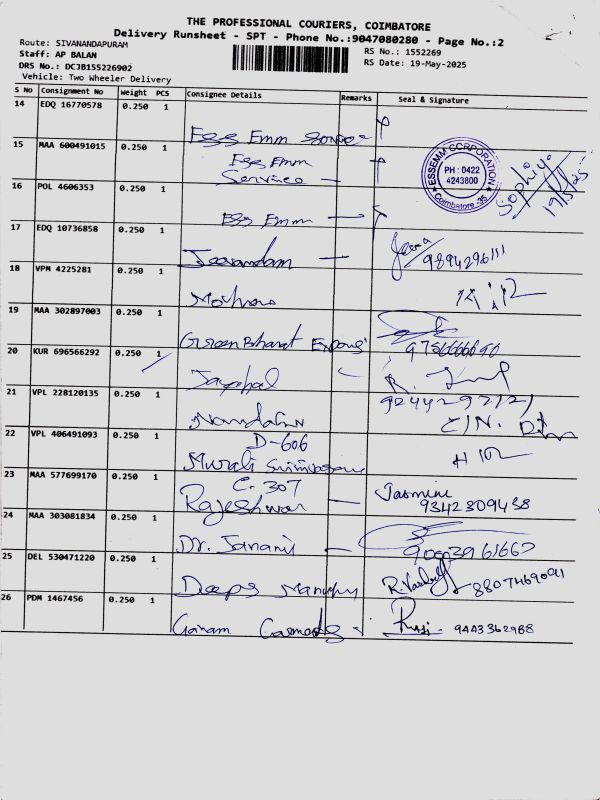 THE PROFESSIONAL COURIERS, COIMBATORE
Delivery Runsheet - SPT - Phone No.:9047080280 - Page No.:2
Route: SIVANANDAPURAM
Staff: AP BALAN
RS No.: 1552269
DRS No.: DCJB155226902
RS Date: 19-May-2025
Vehicle: Two Wheeler Delivery
S No Consignment No Weight PCS Consignee Details Remarks Seal & Signature
14 EDQ 16770578 0.250 1
Ess Emm
15 MAA 600491015 0.250 1
Ess Emm
Service
ESSEMM CORPORATION
PH : 0422
4243800
Coimbatore-35
Sophiya
19/5/25
16 POL 4606353 0.250 1
Ess Emm
17 EDQ 10736858 0.250 1
Jeevandam
9894296111
18 VPM 4225281 0.250 1
19 MAA 302897003 0.250 1
Green Bharat
9756666690
20 KUR 696566292 0.250 1
Jayphal
21 VPL 228120135 0.250 1
22 VPL 406491093 0.250 1
D-606
Murali
23 MAA 577699170 0.250 1
C-307
Rajeshwar
Jasmine
9342309438
24 MAA 303081834 0.250 1
Dr. Janani
25 DEL 530471220 0.250 1
Deepa
26 PDM 1467456 0.250 1
Garmeds
9443362988